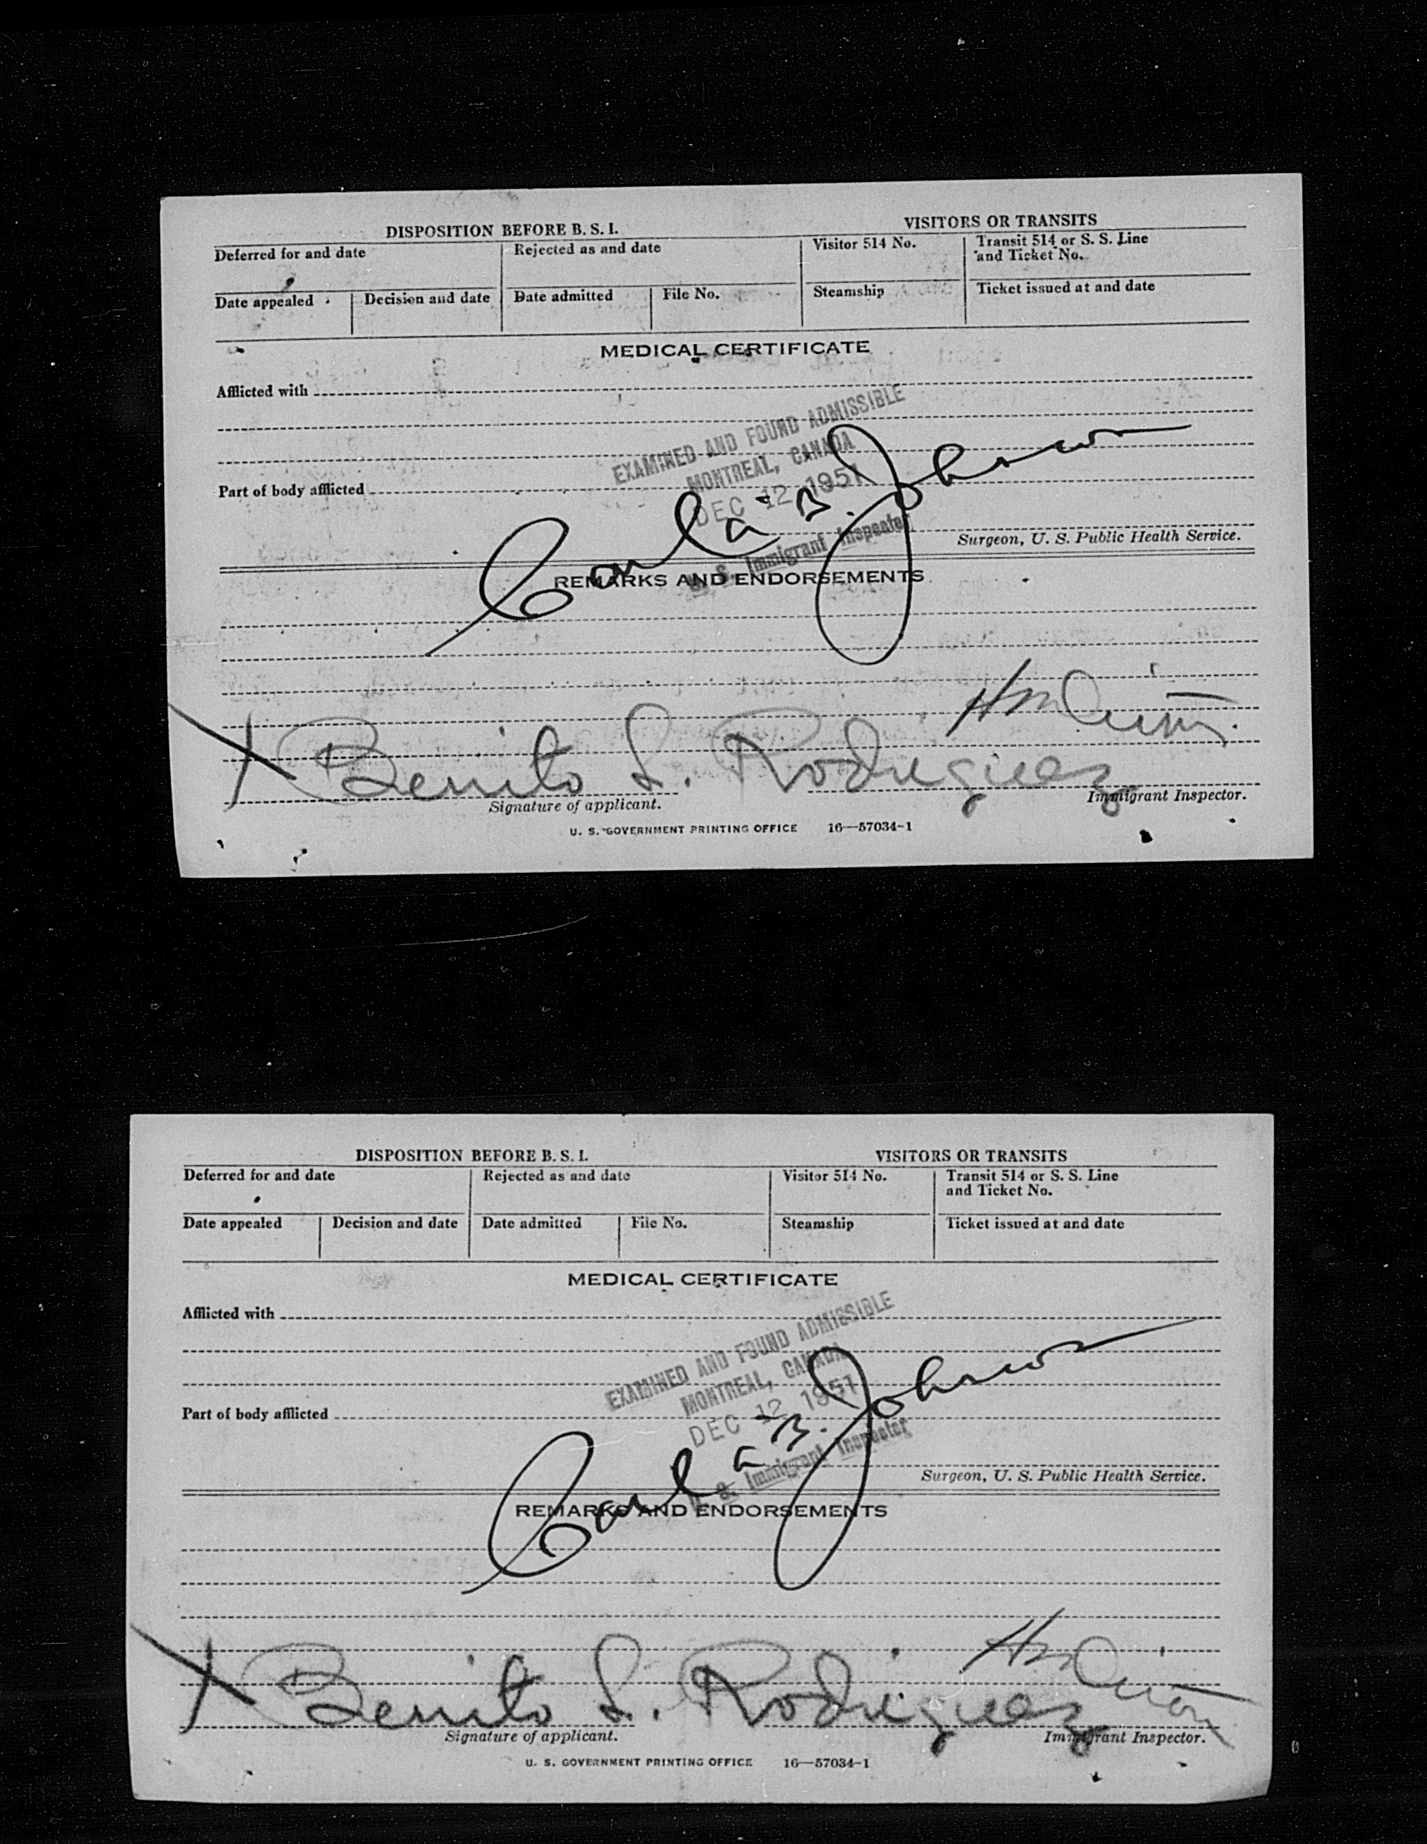 DISPOSITION BEFORE B. S. I.
VISITORS OR TRANSITS
Deferred for and date
Rejected as and date
Visitor 514 No.
Transit 514 or S. S. Line
and Ticket No.
Date appealed
Decision and date
Date admitted
File No.
Steamship
Ticket issued at and date
MEDICAL CERTIFICATE
Afflicted with
EXAMINED AND FOUND ADMISSIBLE
MONTREAL, CANADA
Part of body afflicted
DEC 12 1951
Carl a B. Johnson
U. S. Immigrant Inspector
Surgeon, U. S. Public Health Service.
REMARKS AND ENDORSEMENTS
X Benito L. Rodriguez
Signature of applicant.
Immigrant Inspector.
U. S. GOVERNMENT PRINTING OFFICE 16—57034-1
DISPOSITION BEFORE B. S. I.
VISITORS OR TRANSITS
Deferred for and date
Rejected as and date
Visitor 514 No.
Transit 514 or S. S. Line
and Ticket No.
Date appealed
Decision and date
Date admitted
File No.
Steamship
Ticket issued at and date
MEDICAL CERTIFICATE
Afflicted with
EXAMINED AND FOUND ADMISSIBLE
MONTREAL, CANADA
Part of body afflicted
DEC 12 1951
Carl a B. Johnson
U. S. Immigrant Inspector
Surgeon, U. S. Public Health Service.
REMARKS AND ENDORSEMENTS
X Benito L. Rodriguez
Signature of applicant.
Immigrant Inspector.
U. S. GOVERNMENT PRINTING OFFICE 16—57034-1